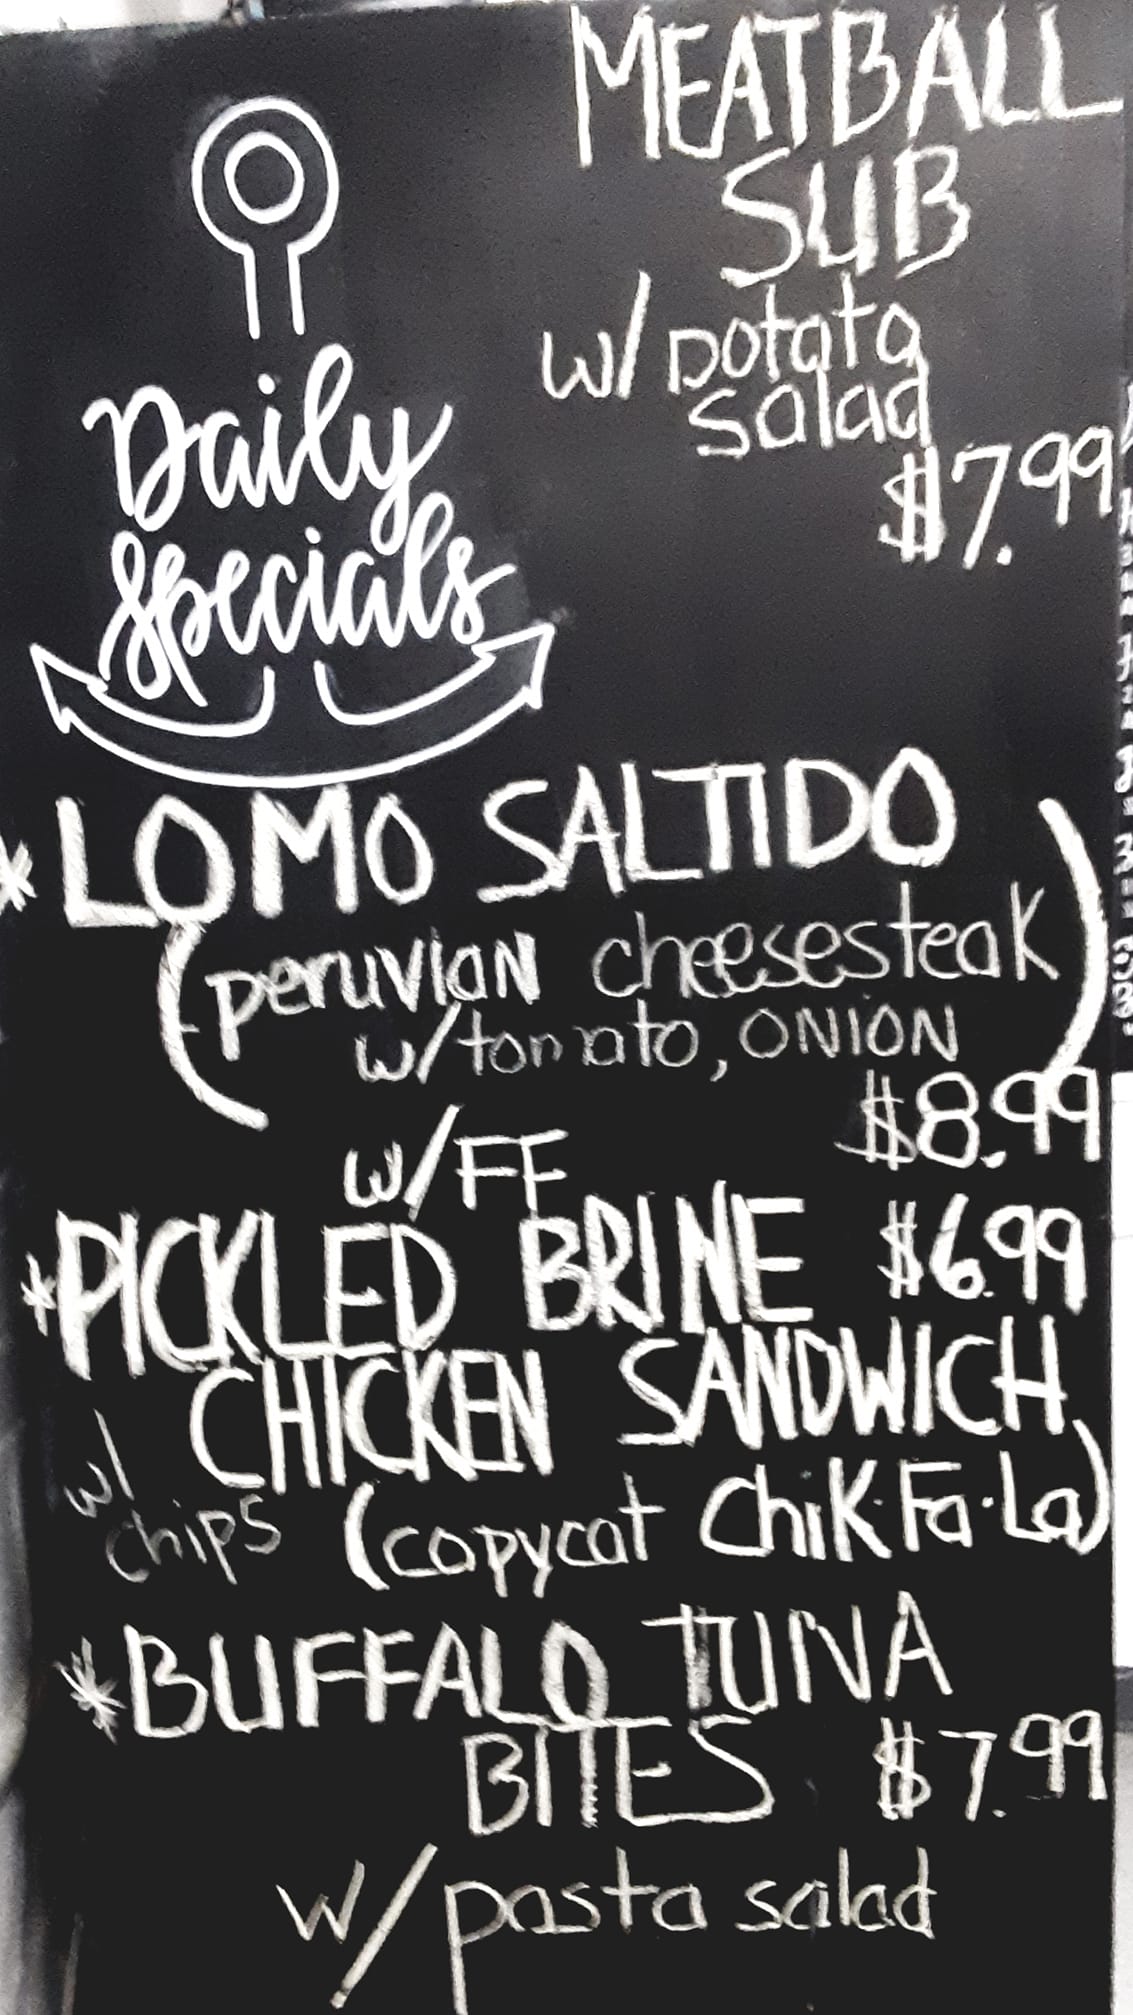 MEATBALL
SUB
w/ potato
salad
$7.99
Daily
Specials
*LOMO SALTIDO
(peruvian cheesesteak
w/tomato, ONION)
$8.99
w/FF
*PICKLED BRINE $6.99
CHICKEN SANDWICH
w/
chips (copycat Chik·Fa·La)
*BUFFALO TUNA
BITES $7.99
w/pasta salad